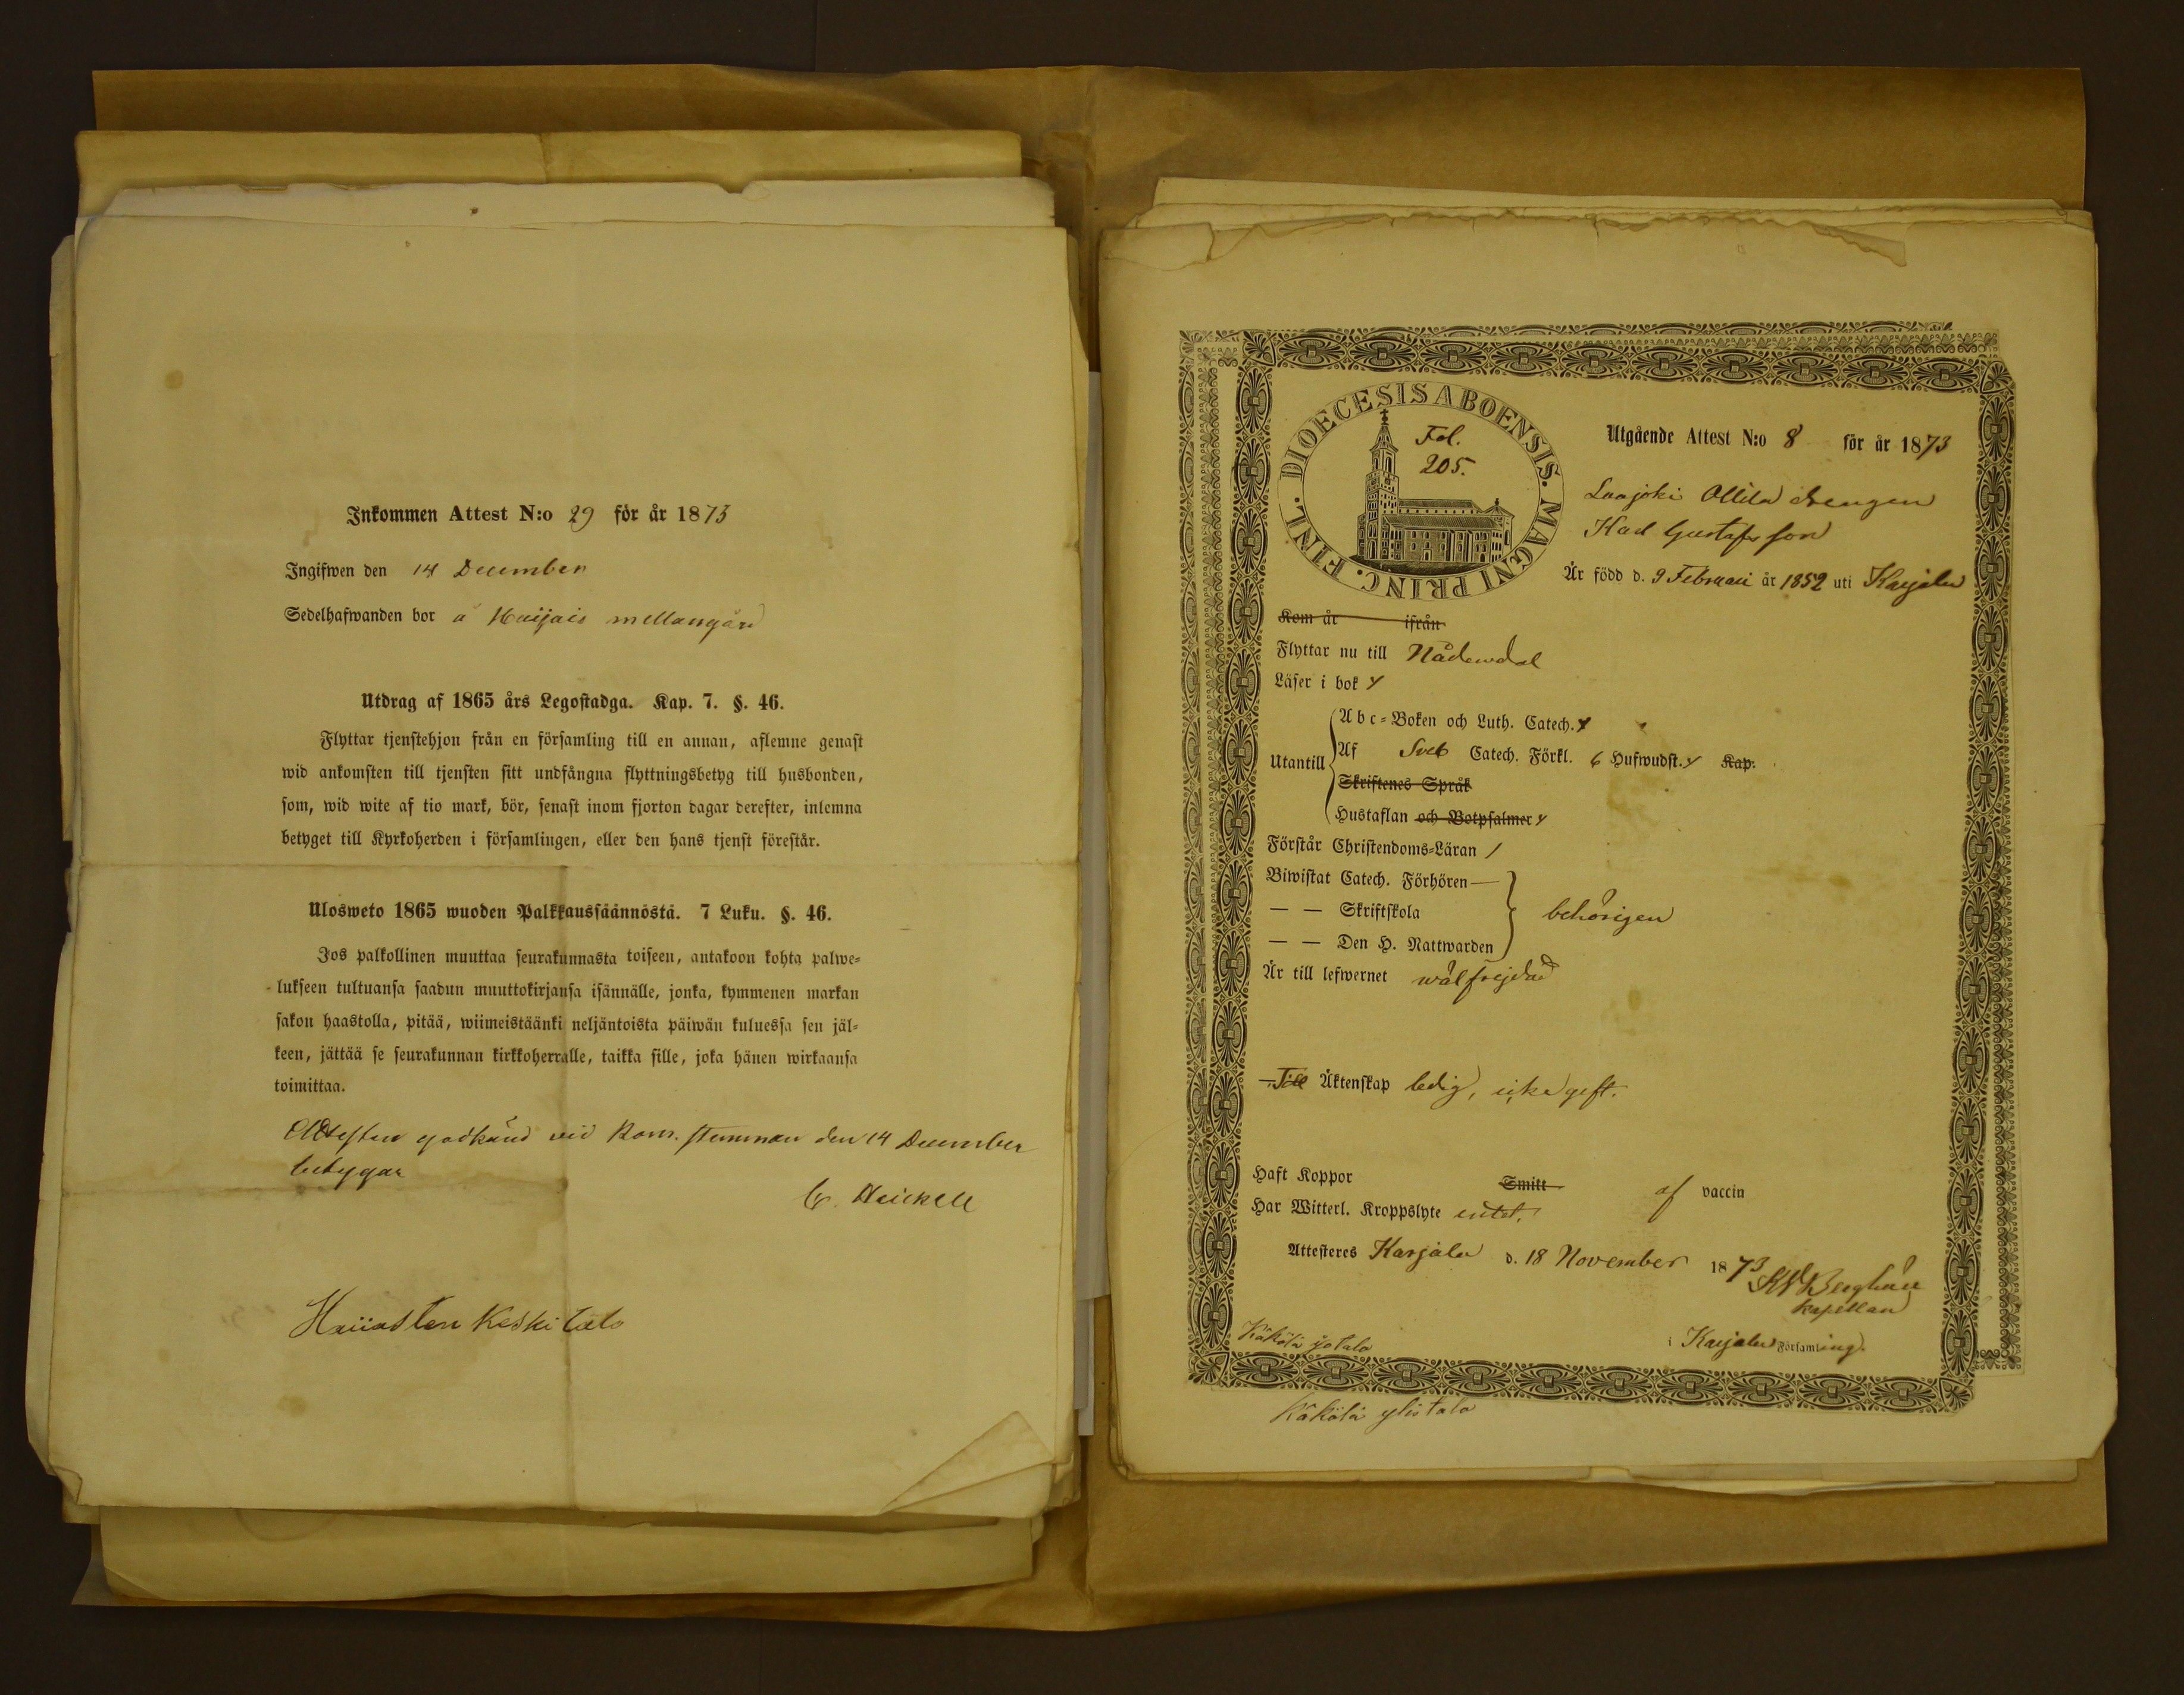 Inkommen Attest N:o 29 för år 1873
Ingifwen den 14 December
Sedelhafwanden bor å Haijais mellangård
Utdrag af 1865 års Legostadga. Kap. 7. §. 46.
Flyttar tjenstehjon från en församling till en annan, aflemne genast
wid ankomsten till tjensten sitt undfångna flyttningsbetyg till husbonden,
som, wid wite af tio mark, bör, senast inom fjorton dagar derefter, inlemna
betyget till Kyrkoherden i församlingen, eller den hans tjenst förestår.
Ulosweto 1865 wuoden Palkkaussäännöstä. 7 Luku. §. 46.
Jos palkollinen muuttaa seurakunnasta toiseen, antakoon kohta palwe=
lukseen tultuansa saadun muuttokirjansa isännälle, jonka, kymmenen markan
sakon haastolla, pitää, wiimeistäänki neljäntoista päiwän kuluessa sen jäl=
keen, jättää se seurakunnan kirkkoherralle, taikka sille, joka hänen wirkaansa
toimittaa.
Attesten godkänd vid kom. stemman den 14 December
betygar
Heickell
Haiiasten Keskitalo
DIOECESIS ABOENSIS. MAGNI PRINC. FINL.
Fol.
205.
Utgående Attest N:o 8 för år 1873
Laajoki Ollila drengen
Karl Gustafsson
Är född d. 9 Februari år 1852 uti Karjala
Kom år ifrån
Flyttar nu till Nådendal
Läser i bok
Utantill
Abc=Boken och Luth. Catech.
Af Sveb Catech. Förkl. 6 Hufwudst. Kap.
Skriftenes Språk
Hustaflan och Botpsalmer
Förstår Christendoms=Läran /
Biwistat Catech. Förhören —
— — Skriftskola
behörigen
— — Den H. Nattwarden
Är till lefwernet wälfrejdad
Till Äktenskap ledig, icke gift.
Haft Koppor Smitt af vaccin
Har Witterl. Kroppslyte intet.
Attesteres Karjala d. 18 November 1873
Kapellan
i Karjala Församling.
Käkölä ylistalo